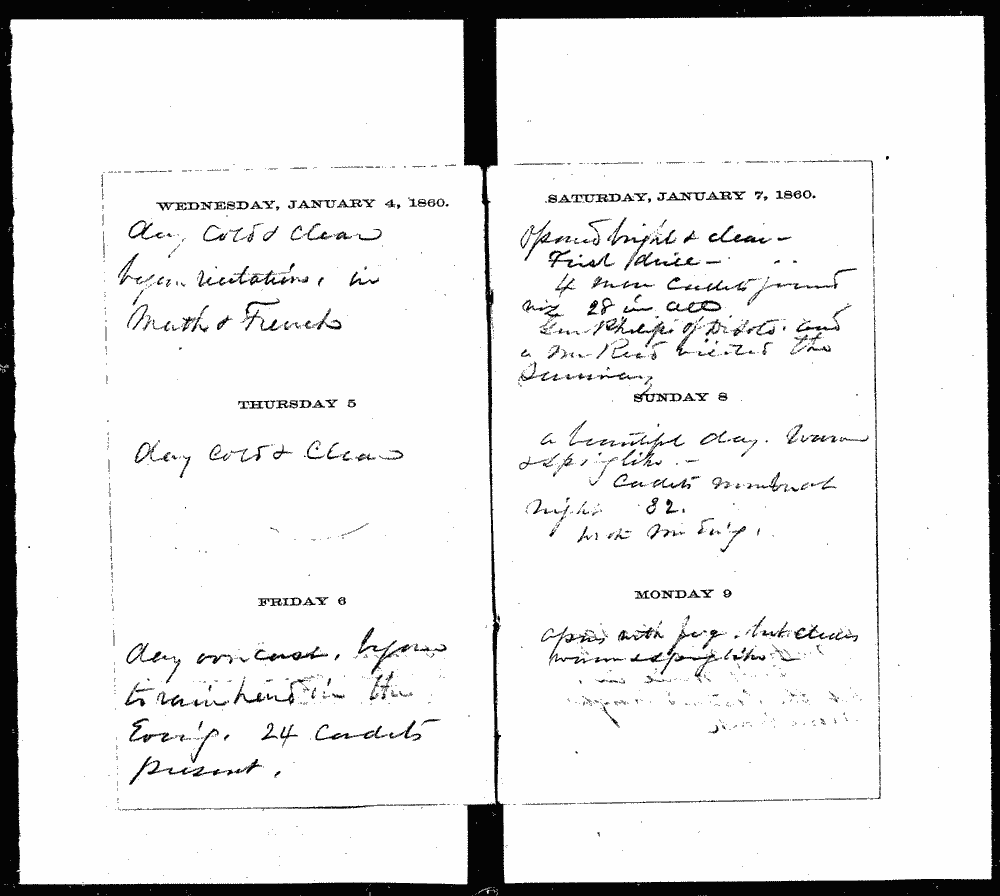 WEDNESDAY, JANUARY 4, 1860.
day cold & clear
began recitations, in
Math & French
THURSDAY 5
day cold & Clear
FRIDAY 6
day overcast, began
to rain hard in the
Eveng. 24 Cadets
present.
SATURDAY, JANUARY 7, 1860.
Opened bright & clear -
First drill -
4 more Cadets joined
viz 28 in all
Genl Philips of DeSoto. and
a Mr Reid visited the
Seminary
SUNDAY 8
a beautiful day. Warm
& spring like. -
Cadets number at
night 32.
MONDAY 9
opens with fog. but clears
warm & spring like -